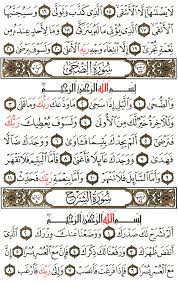 لَا يَصْلَىٰهَآ إِلَّا ٱلْأَشْقَى ١٥ ٱلَّذِى كَذَّبَ وَتَوَلَّىٰ ١٦ وَسَيُجَنَّبُهَا
ٱلْأَتْقَى ١٧ ٱلَّذِى يُؤْتِى مَالَهُۥ يَتَزَكَّىٰ ١٨ وَمَا لِأَحَدٍ عِندَهُۥ مِن
نِّعْمَةٍ تُجْزَىٰٓ ١٩ إِلَّا ٱبْتِغَآءَ وَجْهِ رَبِّهِ ٱلْأَعْلَىٰ ٢٠ وَلَسَوْفَ يَرْضَىٰ ٢١
سُورَةُ الضُّحَى
بِسْمِ ٱللَّهِ ٱلرَّحْمَٰنِ ٱلرَّحِيمِ
وَٱلضُّحَىٰ ١ وَٱلَّيْلِ إِذَا سَجَىٰ ٢ مَا وَدَّعَكَ رَبُّكَ وَمَا قَلَىٰ ٣
وَلَلْءَاخِرَةُ خَيْرٌ لَّكَ مِنَ ٱلْأُولَىٰ ٤ وَلَسَوْفَ يُعْطِيكَ رَبُّكَ
فَتَرْضَىٰٓ ٥ أَلَمْ يَجِدْكَ يَتِيمًا فَـَٔاوَىٰ ٦ وَوَجَدَكَ ضَآلًّا
فَهَدَىٰ ٧ وَوَجَدَكَ عَآئِلًا فَأَغْنَىٰ ٨ فَأَمَّا ٱلْيَتِيمَ فَلَا تَقْهَرْ ٩
وَأَمَّا ٱلسَّآئِلَ فَلَا تَنْهَرْ ١٠ وَأَمَّا بِنِعْمَةِ رَبِّكَ فَحَدِّثْ ١١
سُورَةُ الشَّرْحِ
بِسْمِ ٱللَّهِ ٱلرَّحْمَٰنِ ٱلرَّحِيمِ
أَلَمْ نَشْرَحْ لَكَ صَدْرَكَ ١ وَوَضَعْنَا عَنكَ وِزْرَكَ ٢ ٱلَّذِىٓ
أَنقَضَ ظَهْرَكَ ٣ وَرَفَعْنَا لَكَ ذِكْرَكَ ٤ فَإِنَّ مَعَ ٱلْعُسْرِ يُسْرًا ٥
إِنَّ مَعَ ٱلْعُسْرِ يُسْرًا ٦ فَإِذَا فَرَغْتَ فَٱنصَبْ ٧ وَإِلَىٰ رَبِّكَ فَٱرْغَب ٨